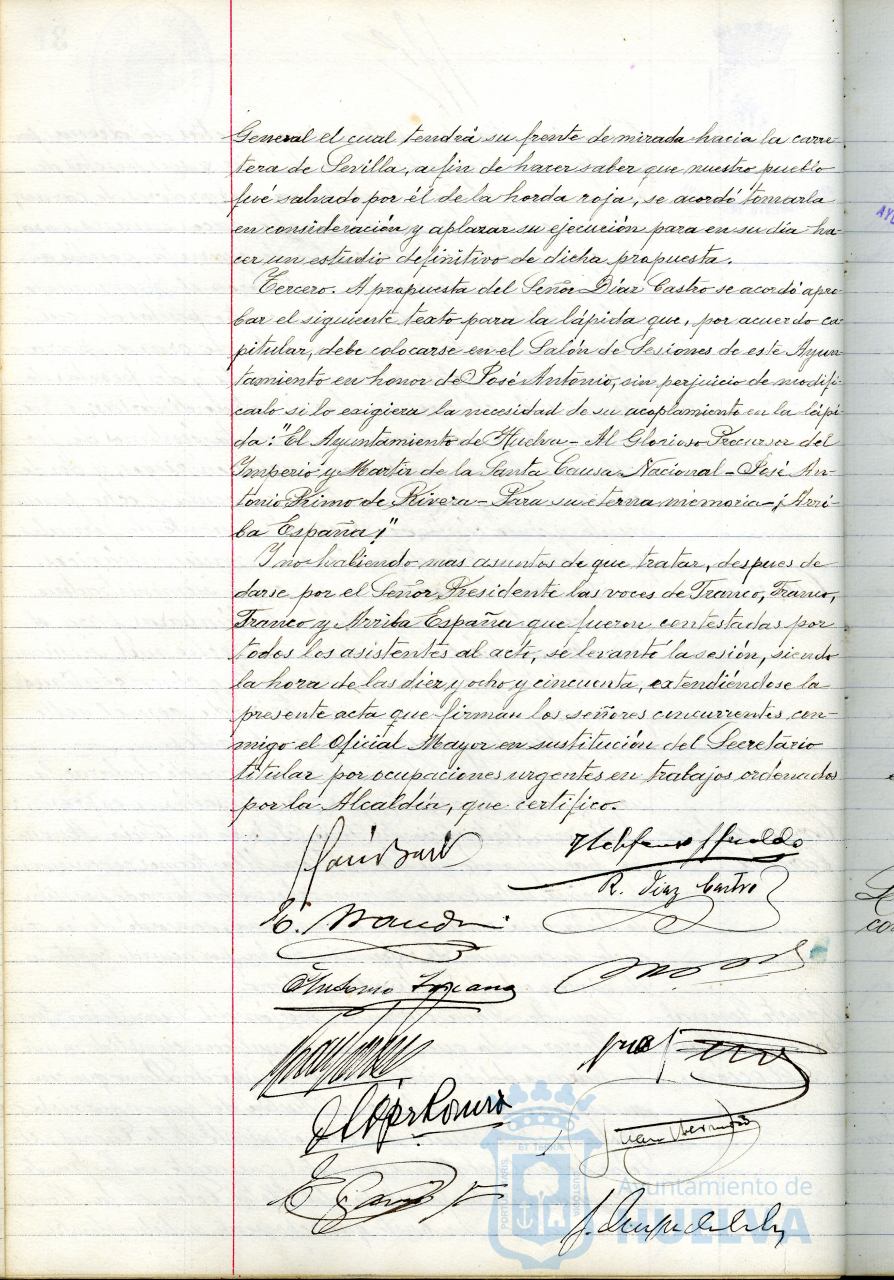 General el cual tendrá su frente de mirada hacia la carre-
tera de Sevilla, a fin de hacer saber que nuestro pueblo
fué salvado por él de la horda roja, se acordó tomarla
en consideración y aplazar su ejecución para en su día ha-
cer un estudio definitivo de dicha propuesta.
Tercero. A propuesta del Señor Díaz Castro se acordó apro-
bar el siguiente texto para la lápida que, por acuerdo ca-
pitular, debe colocarse en el Salón de Sesiones de este Ayun-
tamiento en honor de José Antonio, sin perjuicio de modifi-
carlo si lo exigiera la necesidad de su acoplamiento en la lápi-
da: "El Ayuntamiento de Huelva - Al Glorioso Precursor del
Imperio y Martir de la Santa Causa Nacional - José An-
tonio Primo de Rivera - Para su eterna memoria - ¡Arri-
ba España!"
Y no habiendo mas asuntos de que tratar, despues de
darse por el Señor Presidente las voces de Franco, Franco,
Franco y Arriba España que fueron contestadas por
todos los asistentes al acto, se levantó la sesión, siendo
la hora de las diez y ocho y cincuenta, extendiéndose la
presente acta que firman los señores concurrentes con-
migo el Oficial Mayor en sustitución del Secretario
titular por ocupaciones urgentes en trabajos ordenados
por la Alcaldía, que certifico.
R. Díaz Castro
Ayuntamiento de
HUELVA